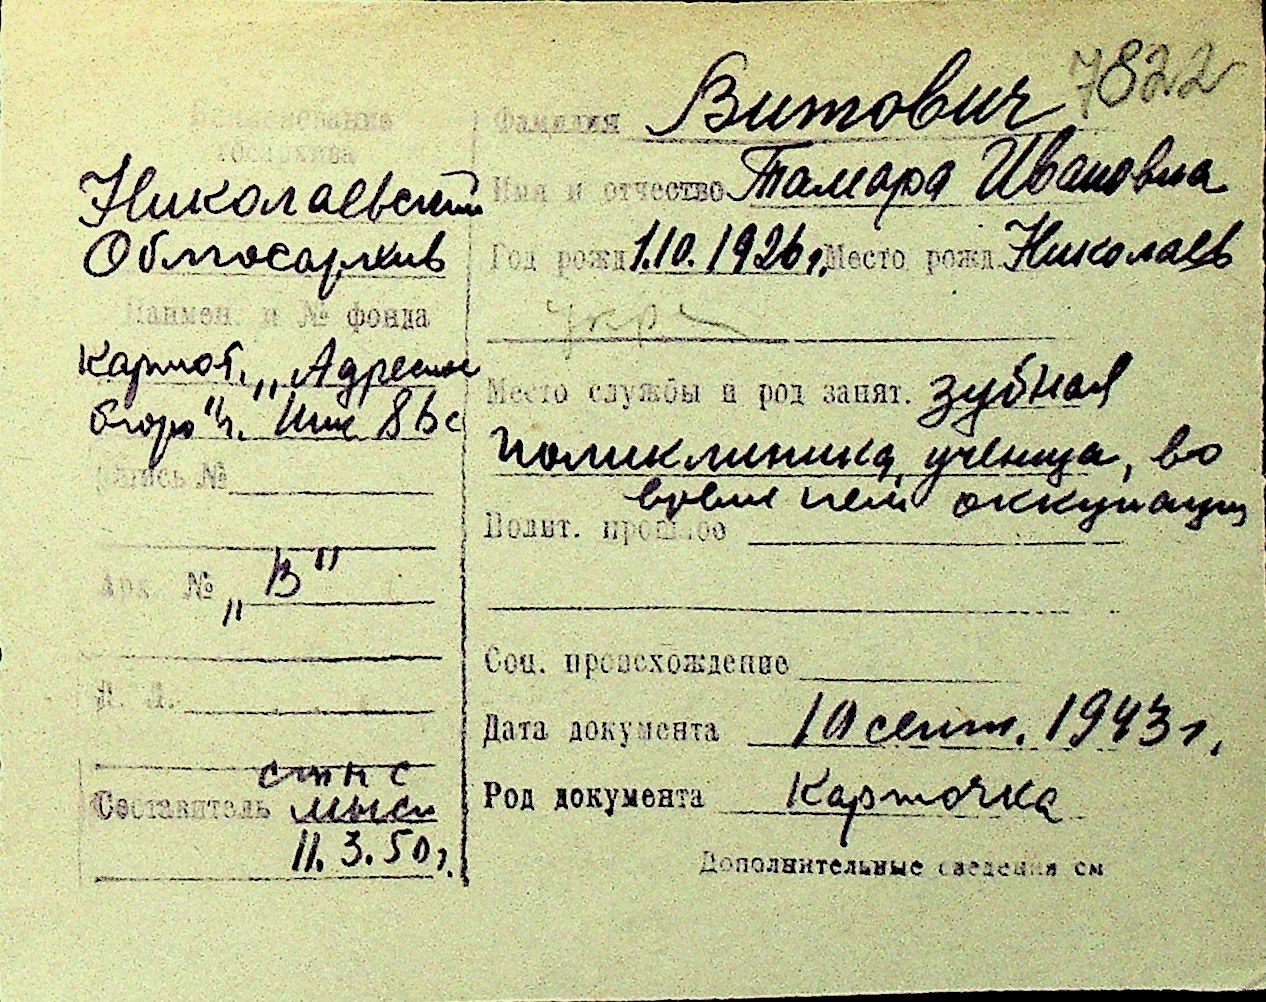 7822
Наименование
облархива
Николаевский
Облгосархив
Наимен. и № фонда
Картот. „Адресное
бюро" г. Ник 86с
Опись №
Арх. № „В"
Л. Л.
Составитель
11. 3. 50 г.
Фамилия Витович
Имя и отчество Тамара Ивановна
Год рожд 1.10.1926 г. Место рожд Николаев
укр
Место службы и род занят. зубная
поликлиника, ученица, во
время нем оккупации
Полит. прошлое
Соц. происхождение
Дата документа 10 сент. 1943 г.
Род документа Карточка
Дополнительные сведения см